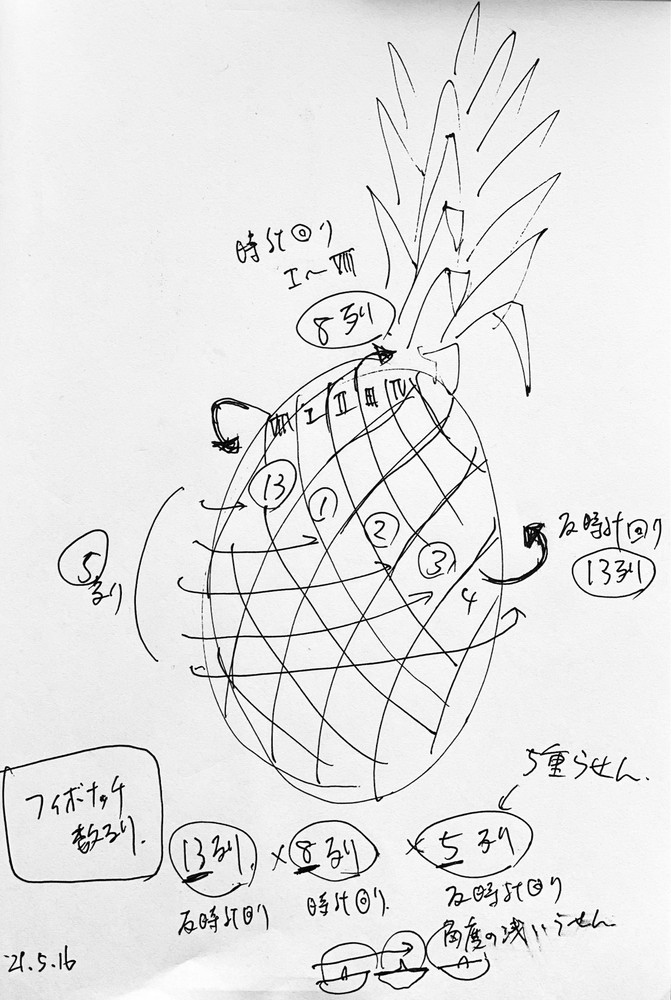 時計回り
I〜VIII
8列
VIII I II III IV
13
1
2
3
4
5
列
反時計回り
13列
5重らせん
フィボナッチ
数列.
13列. × 8列 × 5列
反時計回り 時計回り. 反時計回り
角度の浅いらせん
'21.5.16